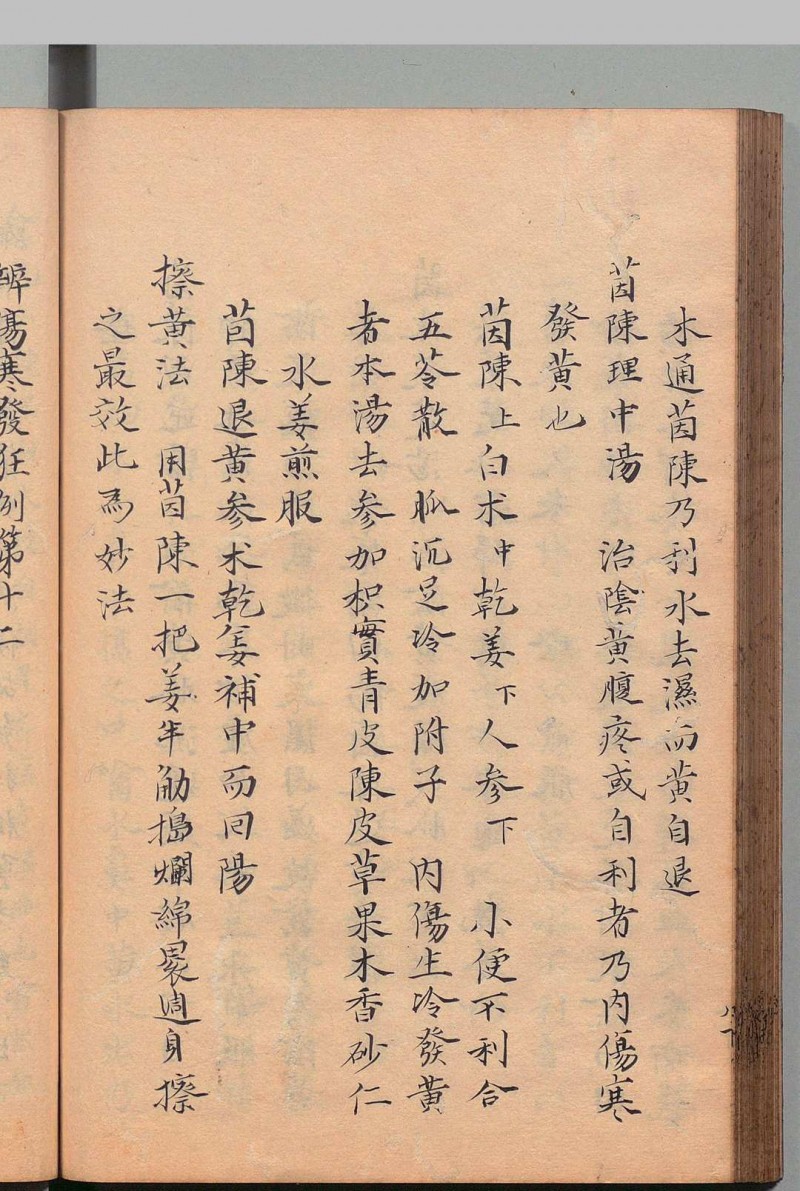 木通茵陳乃利水去濕而黃自退
茵陳理中湯　治陰黃腹疼或自利者乃内傷寒
發黃也
茵陳上白术中乾姜下人参下　小便不利合
五苓散　脈沉足冷加附子　内傷生冷發黃
者本湯去参加枳實青皮陳皮草果木香砂仁
水姜煎服
茵陳退黃参术乾姜補中而回陽
擦黃法　用茵陳一把姜半觔搗爛綿裹週身擦
之最效此為妙法
辨傷寒發狂例第十二